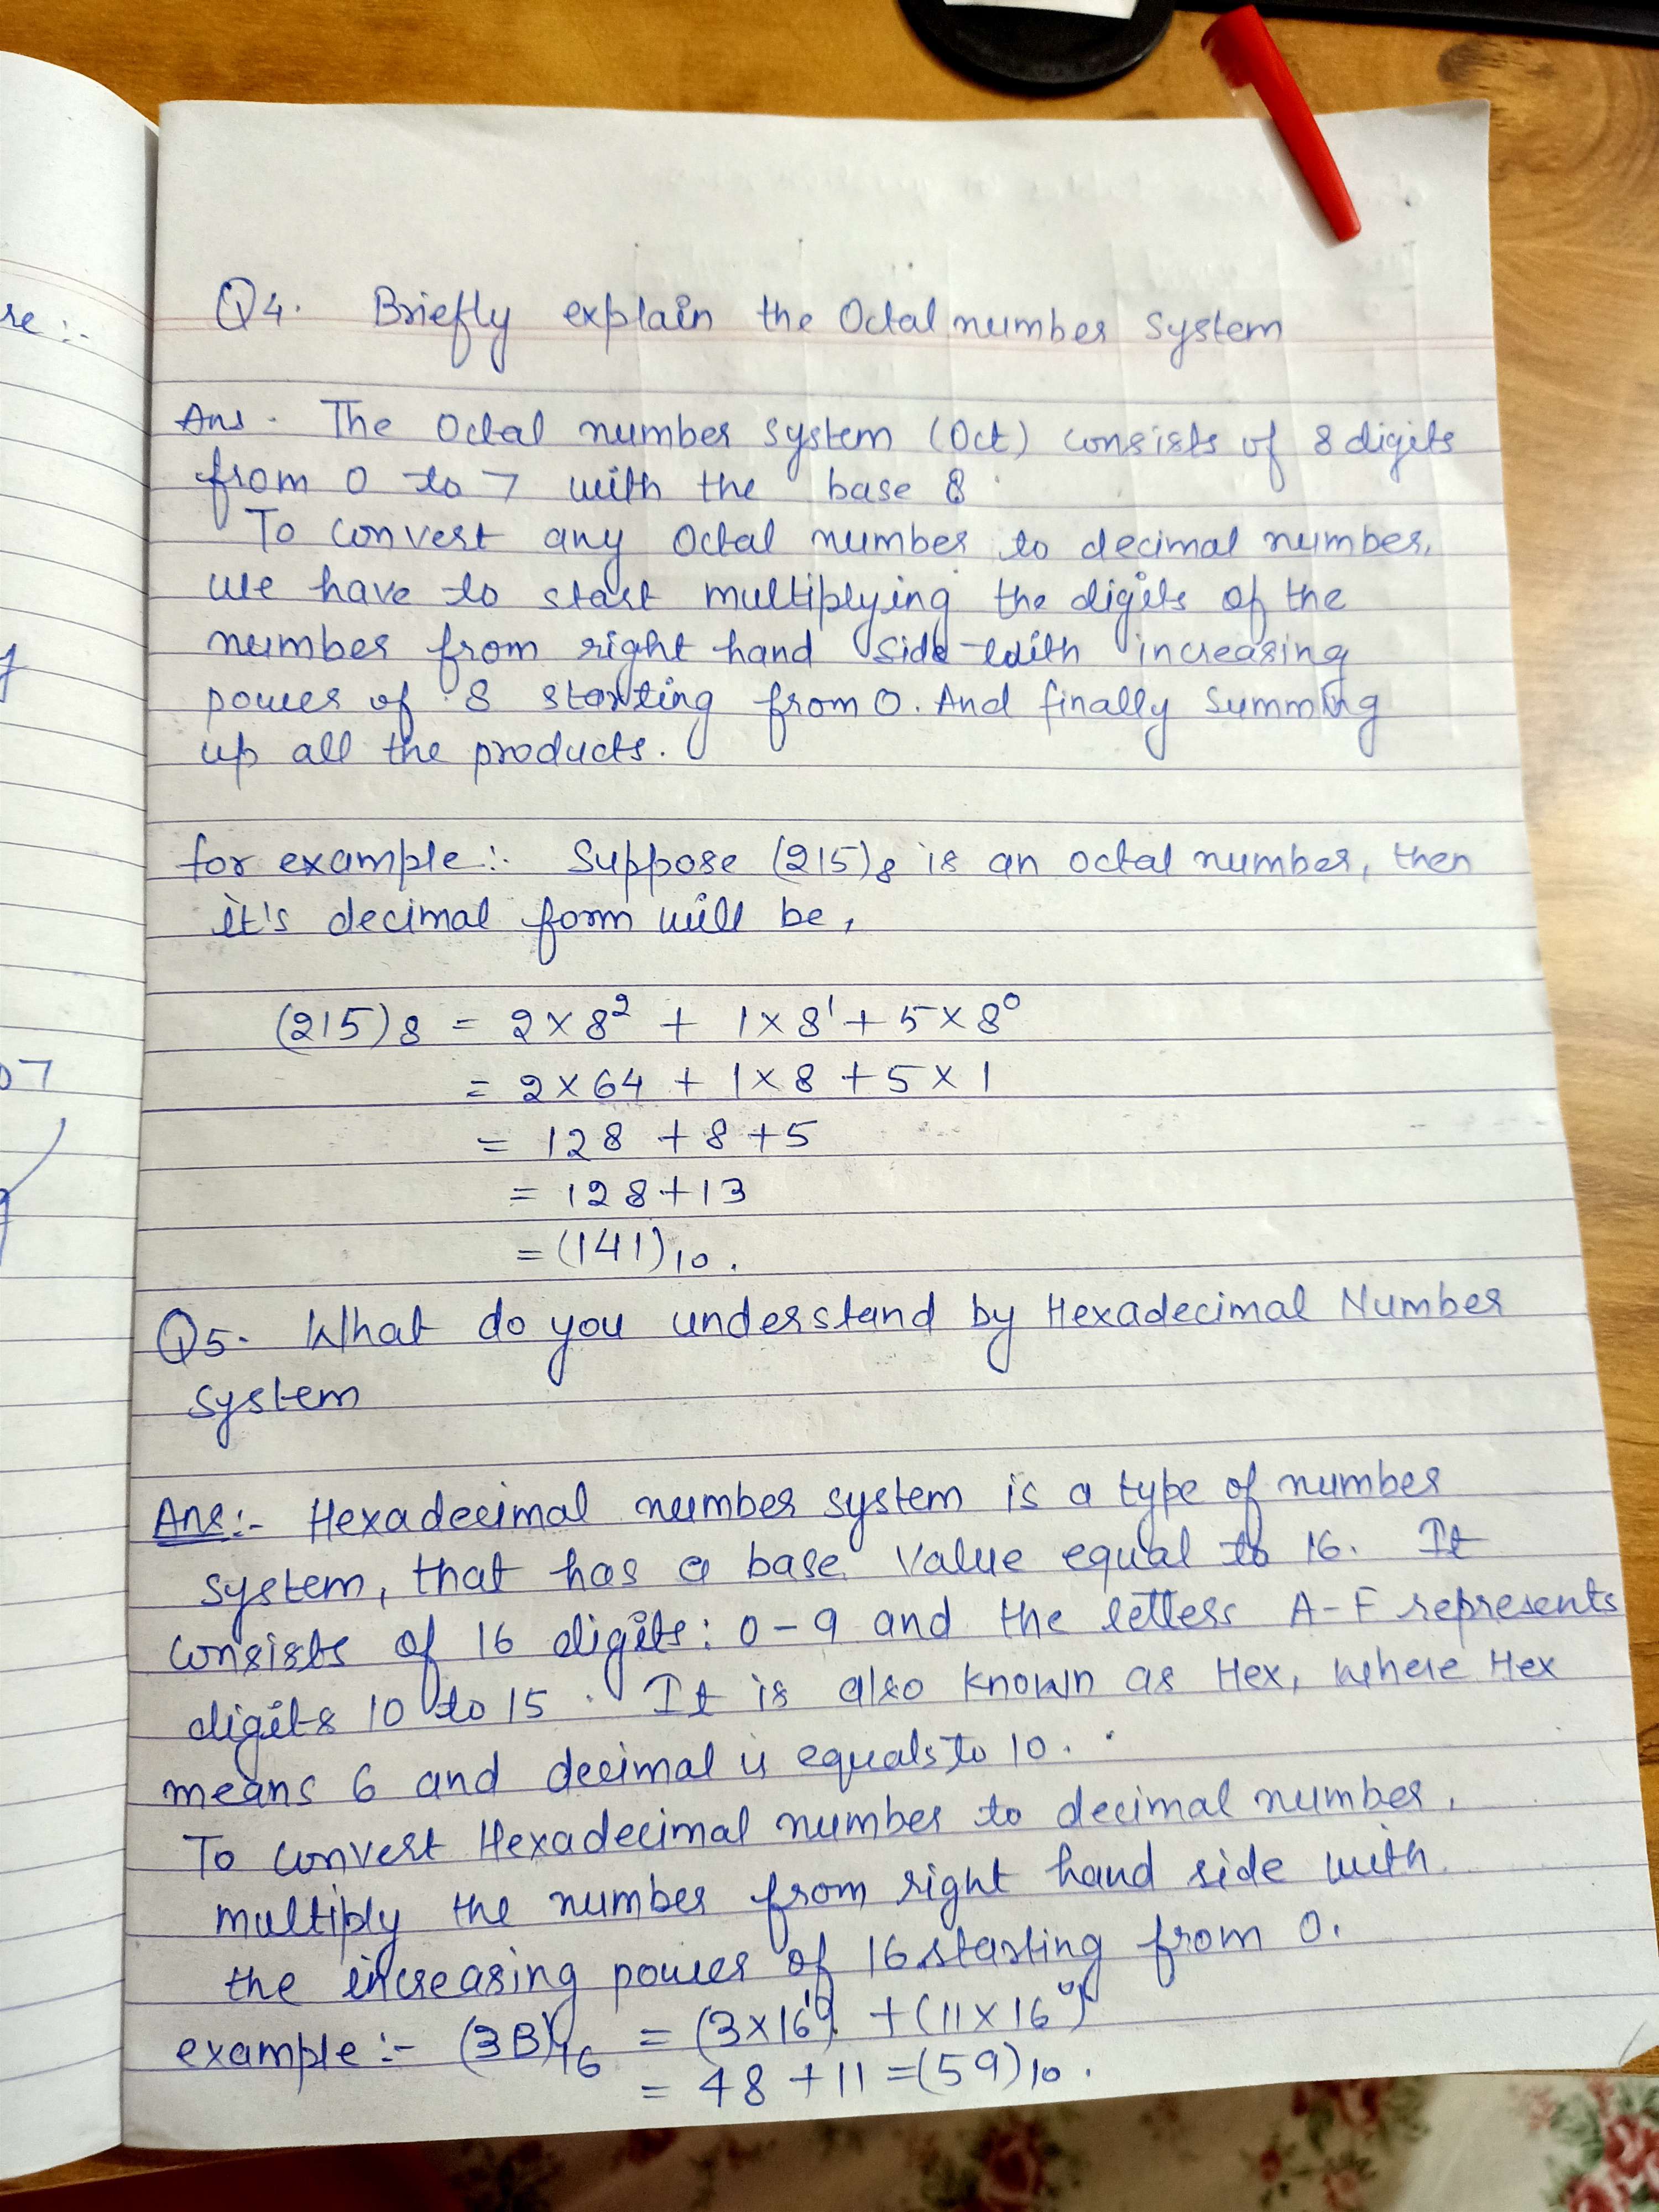 re :-
y
07
Q4. Briefly explain the Octal number system
Ans. The Octal number system (Oct) consists of 8 digits
from 0 to 7 with the base 8.
To convert any Octal number to decimal number,
we have to start multiplying the digits of the
number from right hand side with increasing
power of 8 starting from 0. And finally summing
up all the products.
for example:- Suppose (215)₈ is an octal number, then
it's decimal form will be,
(215)₈ = 2 × 8² + 1 × 8¹ + 5 × 8⁰
= 2 × 64 + 1 × 8 + 5 × 1
= 128 + 8 + 5
= 128 + 13
= (141)₁₀.
Q5- What do you understand by Hexadecimal Number
system
Ans:- Hexadecimal number system is a type of number
system, that has a base value equal to 16. It
consists of 16 digits: 0-9 and the letters A-F represents
digits 10 to 15. It is also known as Hex, where Hex
means 6 and decimal is equals to 10.
To convert Hexadecimal number to decimal number,
multiply the number from right hand side with
the increasing power of 16 starting from 0.
example:- (3B)₁₆ = (3×16¹) + (11×16⁰)
= 48 + 11 = (59)₁₀.